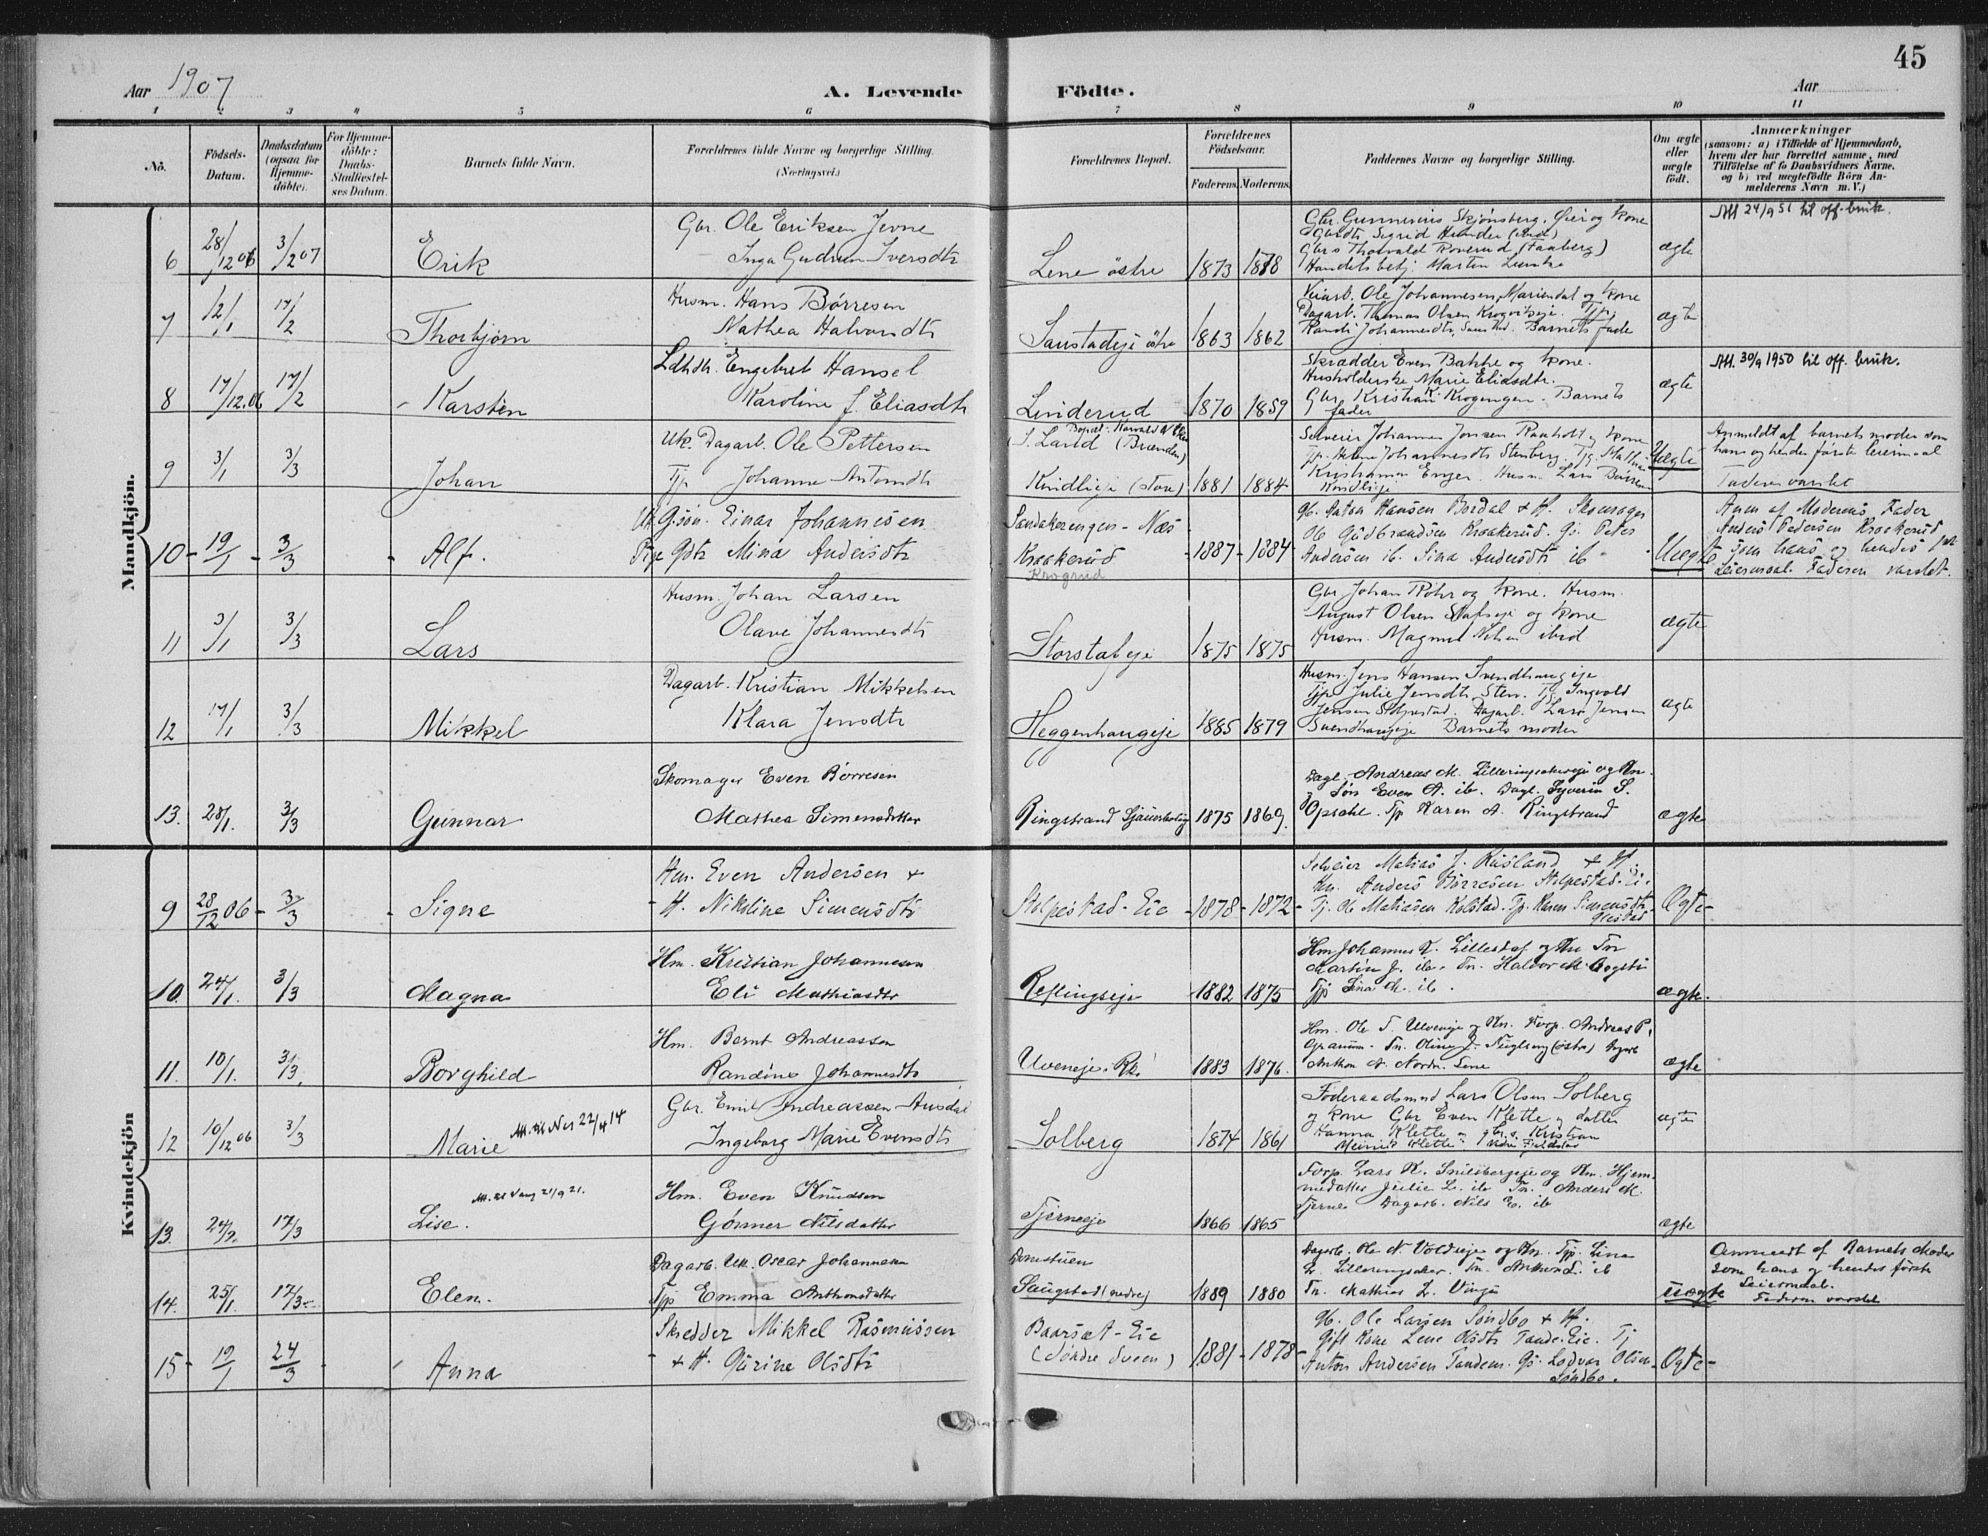 45
Aar 1907
A. Levende Födte.
Aar
1 2 3 4 5 6 7 8 9 10 11
No.
Födsels-Datum.
Daabsdatum (ogsaa for Hjemme-döbte).
For Hjemme-döbte: Daabs-Stadfæstel-ses Datum.
Barnets fulde Navn.
Forældrenes fulde Navne og borgerlige Stilling. (Næringsvei.)
Forældrenes Bopæl.
Forældrenes Födselsaar.
Faderens. Moderens.
Faddernes Navne og borgerlige Stilling.
Om ægte eller uægte födt.
Anmærkninger
(saasom: a) i Tilfælde af Hjemmedaab, hvem der har forrettet samme, med Tilföielse af to Daabsvidners Navne, og b) ved uægtefödte Börn An-melderens Navn m. V.)
Mandkjön.
6 28/12 06 3/2 07 Erik
Gbr. Ole Eriksen Jevne
Inga Gudrun Iversdtr
Lene østre 1873 1878
Gbr. Gunnerius Skjønsberg, Øier og Kone
Gbrs Thorvald Roverud (Faaberg)
ægte
Att 24/9 51 til off. bruk.
7 12/1 17/2 Thorbjørn
Husm. Hans Børresen
Mathea Halvorsdtr
1863 1862
Veiarb. Ole Johannesen, Mariendal og Kone
Dagarb. Thomas Olsen
Barnets fader
ægte
8 17/12.06 17/2 Karsten
Engebret Hansen
Karoline f. Eliasdtr
Linderud 1870 1859
Skrædder Even Bakke og Kone.
Husholderske Marie Eliasdtr.
Gbr Kristian Krogengen. Barnets fader
ægte
Att. 30/9 1950 til off. bruk.
9 3/1 3/3 Johan
Uk. Dagarb. Ole Pettersen
Tjp Johanne Antonsdtr
S. Land (Brænden)
Kindlieje (store) 1881 1884
Selveier Johannes Jensen og Kone
Husm. Lars Børresen
Kindlieje
Uægte
Anmeldt af barnets moder som
hans og hendes første leiermaal
Faderen varslet
10 - 19/1 - 3/3 - Alf.
Uk G.søn. Einar Johannesen
Pige Gdtr Mina Andersdtr
Næs
Kraakerud
Krogrud
1887 - 1884
Gb. Anton Hansen Bordal & H.
Gb Gudbrandsen Kraakerud. Gs. Peter
Andersen ib. Sina Andersdtr ib
Uægte
Anm af Moderens Fader
Anders Pedersen Kraakerud
som hans og hendes
Leiermaal. Faderen varslet.
11 3/1 3/3 Lars
Husm. Johan Larsen
Olave Johannesdtr
Storstabeje 1875 1875
Gbr Johan Rohr og Kone. Husm.
August Olsen og Kone
Husm. Magnus Nilsen ibid
ægte
12 17/1 3/3 Mikkel
Dagarb. Kristian Mikkelsen
Klara Jensdtr
Heggenhaugeje 1885 1879
Husm Jens Hansen Svendhaugeje
Tjp. Julie Jensdtr Sten. Tj. Ingvold
Jensen Stolpestad. Dagarb. Lars Jensen
Svendhaugeje Barnets moder
ægte
13. 28/1. 3/3 Gunnar
Skomager Even Børresen
Mathea Simensdatter
Ringstrand 1875 1869.
Dagl. Andreas M. Lilleringsakereje og Kn.
og Søn Even A. ib. Dagl. Syverin S.
Opsahl. Tjp Karen A. Ringstrand
ægte
Kvindekjön
9 28/12 06 - 3/3 - Signe
Hm. Even Andersen &
H. Nikoline Simensdtr
Stolpestad-Eie - 1878 - 1872 -
Selveier Matias J. Rusland & H.
Hm. Anders Børresen Stolpestad-Ei.
Tj. Ole Matiasen Kolstad. Tp. Karen Simensdtr
Ægte -
10. 24/1. 3/3 Magna
Hm. Kristian Johannesen
Eli Mathiasdtr
Reflingseje 1882 1875
Hm Johannes K. Lillestaf og Kn Tn
Martin J. ib. Tn. Halvor M.
Tjp Lina M. ib.
ægte.
11. 10/1. 3/3. Borghild
Hm. Bernt Andreassen
Randine Johannesdtr
Ulveneje. Rk. 1883 1876.
Hm. Ole T. Ulveneje og Kn. Forp. Andreas P.
Anthon A. Nordn. Lene
ægte
12 10/12 06 3/3 Marie Att. til Nes 22/4 14
Gbr. Emil Andreassen Ausdal
Ingeborg Marie Evensdtr
Solberg 1874 1861
Føderaadsmand Lars Olsen Solberg
og Kone Gbr Even Klette og datter
Hanna Klette
ægte
13. 24/2. 17/3 Lise. Att. til Vang 21/9 21.
Hm. Even Knudsen
Gørmer Nilsdatter
Tjerneeje 1866 1865
Forp. Lars K. Snilsbergeje og Kn. Hjem-
medatter Julie L. ib Tn. Anders M.
Tjerne. Dagarb. Nils E. ib
ægte
14. 25/1. 17/3 Elen.
Dagarb. Uk. Oscar Johannesen
Tjp Emma Anthonsdatter
Saugstad (nedre) 1889 1880
Dagarb. Ole N. Voldseje og Kn. Tjp. Lina
L. Lilleringsaker. Tn. Anthon L. ib
Tn. Mathias L.
uægte
Anmeldt af Barnets Moder
som hans og hendes første
Leiermaal.
Faderen varslet
15 - 19/1 24/3 - Anna
Skredder Mikkel Rasmussen
& H. Gurine Olsdtr
Baarsæt-Eie
(Søndre Sveen) 1881 - 1878 -
Gb. Ole Larsen Søndbo & H.
Gift Kone Lene Olsdtr Tande-Eie. Tj
Anton Andersen Tanden. Gs. Lodvar Olsen
Søndbo.
Ægte -